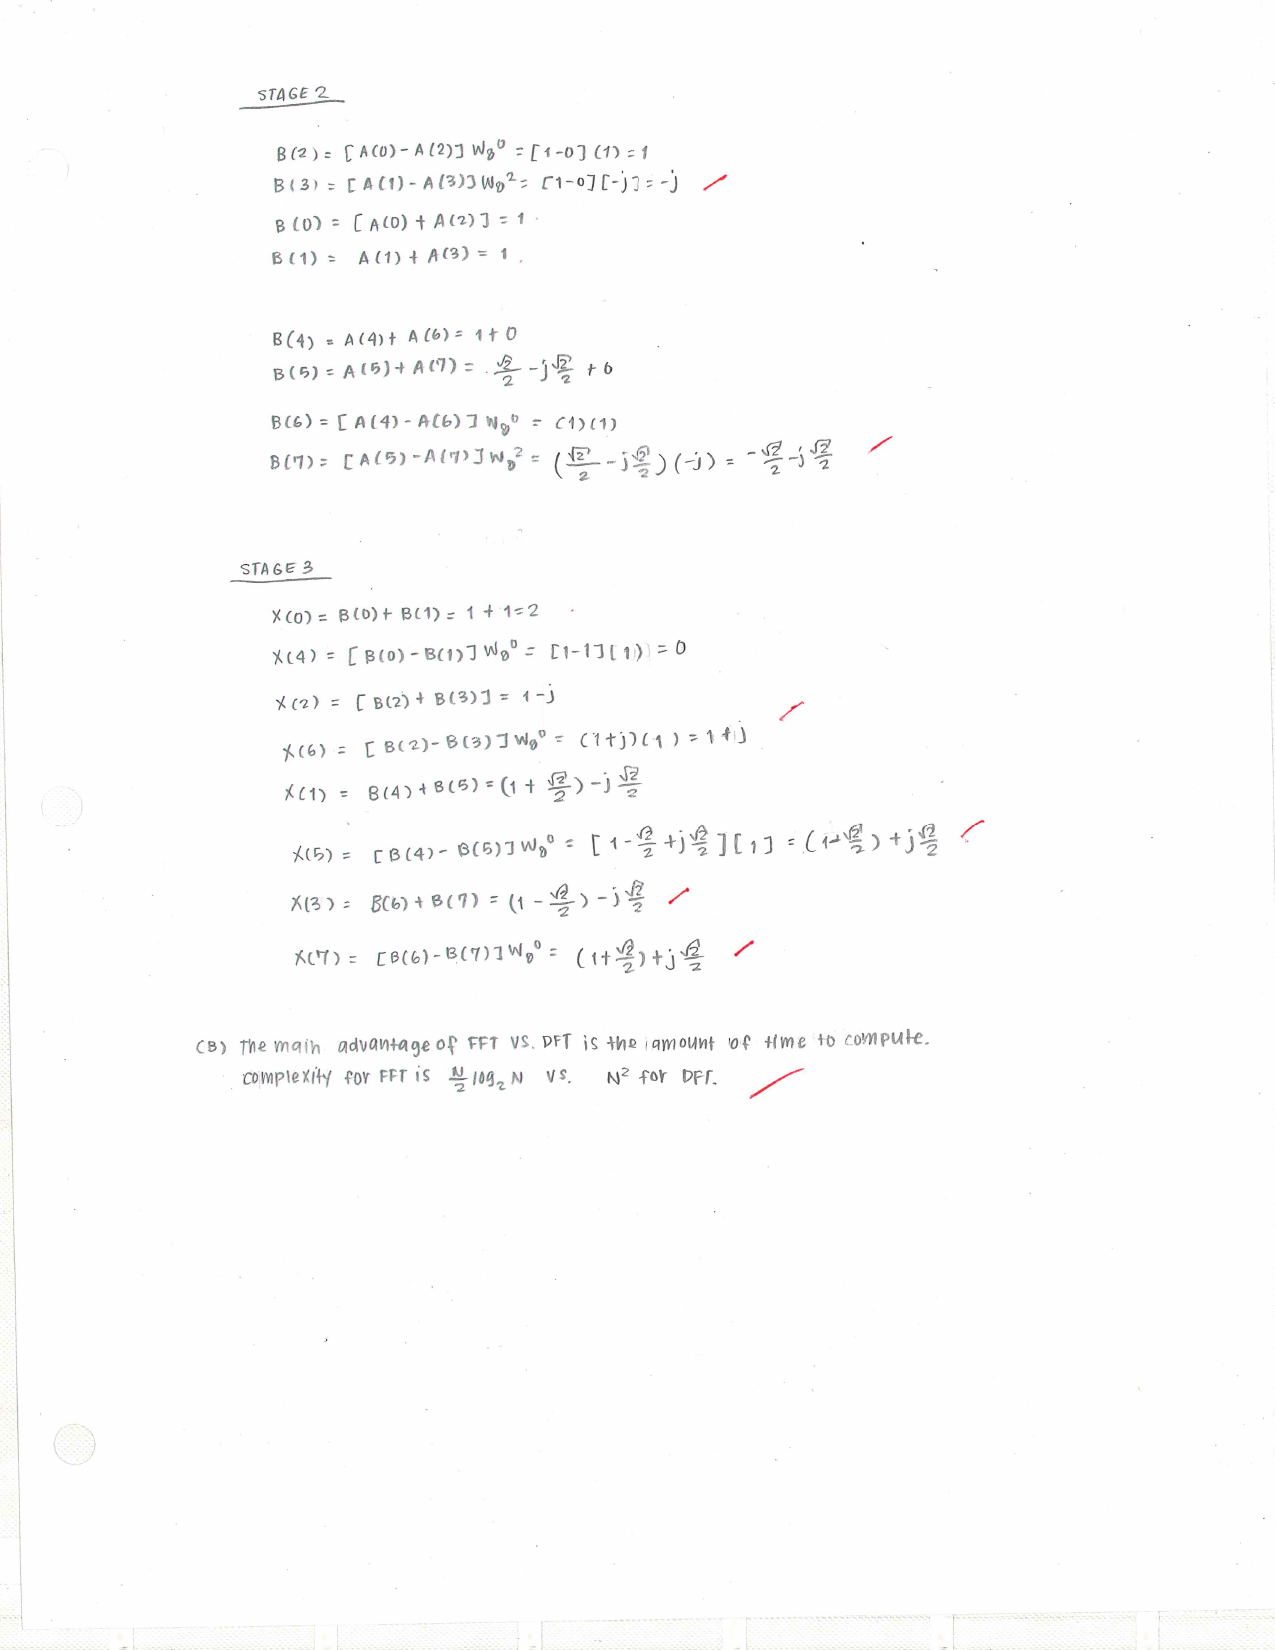 STAGE 2
B(2) = [A(0) - A(2)] W₈⁰ = [1-0] (1) = 1
B(3) = [A(1) - A(3)] W₈² = [1-0] [-j] = -j
B(0) = [A(0) + A(2)] = 1
B(1) = A(1) + A(3) = 1
B(4) = A(4) + A(6) = 1 + 0
B(5) = A(5) + A(7) = √2/2 - j√2/2 + 0
B(6) = [A(4) - A(6)] W₈⁰ = (1)(1)
B(7) = [A(5) - A(7)] W₈² = (√2/2 - j√2/2)(-j) = -√2/2 - j√2/2
STAGE 3
X(0) = B(0) + B(1) = 1 + 1 = 2
X(4) = [B(0) - B(1)] W₈⁰ = [1-1][1) = 0
X(2) = [B(2) + B(3)] = 1 - j
X(6) = [B(2) - B(3)] W₈⁰ = (1+j)(1) = 1 + j
X(1) = B(4) + B(5) = (1 + √2/2) - j√2/2
X(5) = [B(4) - B(5)] W₈⁰ = [1 - √2/2 + j√2/2][1] = (1-√2/2) + j√2/2
X(3) = B(6) + B(7) = (1 - √2/2) - j√2/2
X(7) = [B(6) - B(7)] W₈⁰ = (1+√2/2) + j√2/2
(B) The main advantage of FFT VS. DFT is the amount of time to compute.
complexity for FFT is N/2 log₂ N VS. N² for DFT.